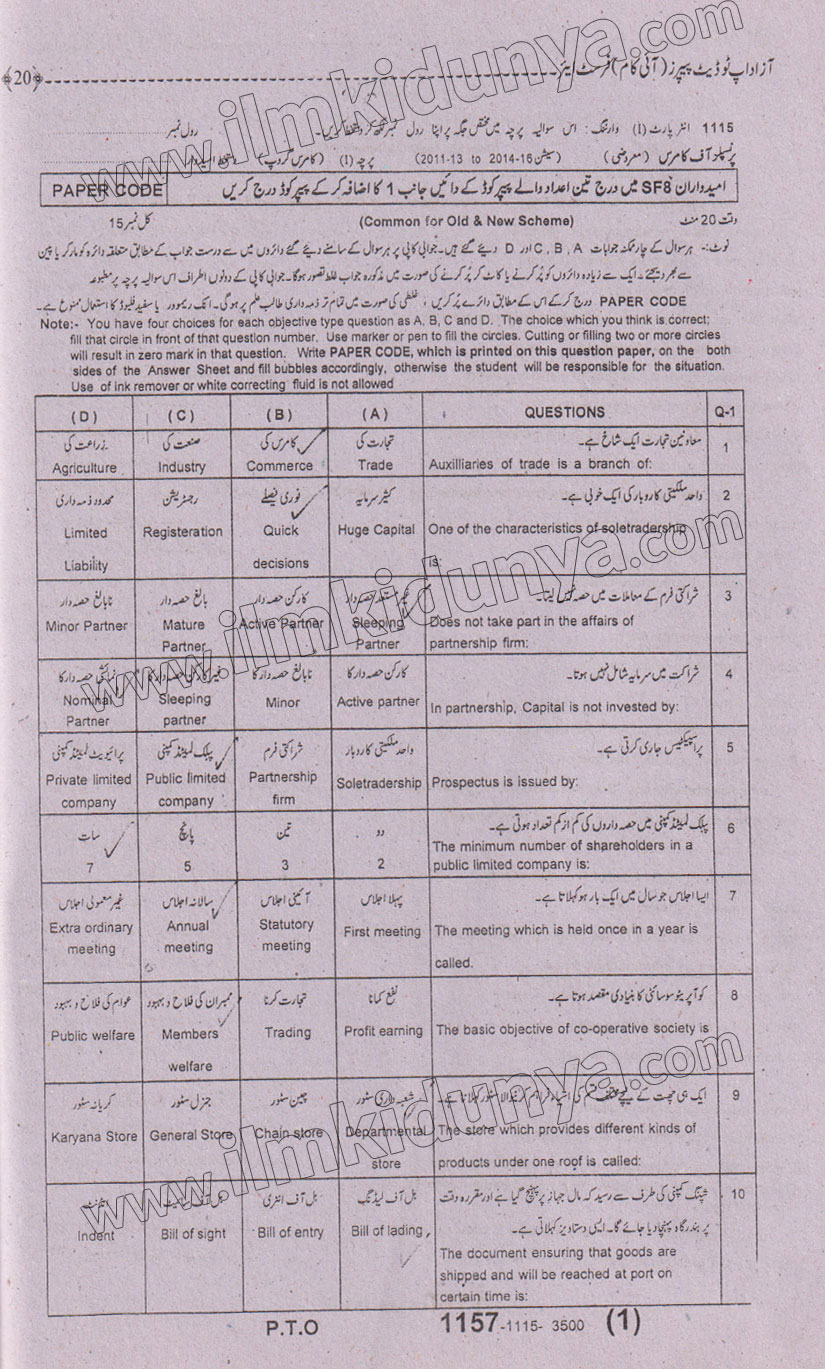 آزاد اپ ٹو ڈیٹ پیپرز (آئی کام) فرسٹ ایئر ﴾20﴿
1115 انٹر پارٹ (I) وارننگ: اس سوالیہ پرچہ میں مختص جگہ پر اپنا رول نمبر لکھ کر دستخط کریں۔ رول نمبر
پرنسپلز آف کامرس (معروضی) (سیشن 16-2014 to 2011-13) پرچہ (I) (کامرس گروپ) دستخط امیدوار
PAPER CODE امیدواران SF8 میں درج تین اعداد والے پیپر کوڈ کے دائیں جانب 1 کا اضافہ کر کے پیپر کوڈ درج کریں
وقت 20 منٹ (Common for Old & New Scheme) کل نمبر 15
نوٹ:- ہر سوال کے چار ممکنہ جوابات A, B, C اور D دیئے گئے ہیں۔ جوابی کاپی پر ہر سوال کے سامنے دیئے گئے دائروں میں سے درست جواب کے مطابق متعلقہ دائرہ کو مارکر یا پین
سے بھر دیجئے۔ ایک سے زیادہ دائروں کو پُر کرنے یا کاٹ کر پُر کرنے کی صورت میں مذکورہ جواب غلط تصور ہوگا۔ جوابی کاپی کے دونوں اطراف اس سوالیہ پرچہ پر مطبوعہ
PAPER CODE درج کر کے اس کے مطابق دائرے پُر کریں، غلطی کی صورت میں تمام تر ذمہ داری طالب علم پر ہوگی۔ انک ریموور یا سفید فلیوڈ کا استعمال ممنوع ہے۔
Note:- You have four choices for each objective type question as A, B, C and D. The choice which you think is correct;
fill that circle in front of that question number. Use marker or pen to fill the circles. Cutting or filling two or more circles
will result in zero mark in that question. Write PAPER CODE, which is printed on this question paper, on the both
sides of the Answer Sheet and fill bubbles accordingly, otherwise the student will be responsible for the situation.
Use of ink remover or white correcting fluid is not allowed
(D) (C) (B) (A) QUESTIONS Q-1
زراعت کی صنعت کی کامرس کی تجارت کی معاونین تجارت ایک شاخ ہے۔ 1
Agriculture Industry Commerce Trade Auxilliaries of trade is a branch of:
محدود ذمہ داری رجسٹریشن فوری فیصلے کثیر سرمایہ واحد ملکیتی کاروبار کی ایک خوبی ہے۔ 2
Limited Registeration Quick Huge Capital One of the characteristics of soletradership
Liability decisions is:
نابالغ حصہ دار بالغ حصہ دار کارکن حصہ دار حصہ دار شراکتی فرم کے معاملات میں حصہ نہیں لیتا۔ 3
Minor Partner Mature Active Partner Sleeping Does not take part in the affairs of
Partner Partner partnership firm:
نمائشی حصہ دار کا غیر کارکن حصہ دار کا نابالغ حصہ دار کا کارکن حصہ دار کا شراکت میں سرمایہ شامل نہیں ہوتا۔ 4
Nominal Sleeping Minor Active partner In partnership, Capital is not invested by:
Partner partner
پرائیویٹ لمیٹڈ کمپنی پبلک لمیٹڈ کمپنی شراکتی فرم واحد ملکیتی کاروبار پراسپیکٹس جاری کرتی ہے۔ 5
Private limited Public limited Partnership Soletradership Prospectus is issued by:
company company firm
سات پانچ تین دو پبلک لمیٹڈ کمپنی میں حصہ داروں کی کم از کم تعداد ہوتی ہے۔ 6
7 5 3 2 The minimum number of shareholders in a
public limited company is:
غیر معمولی اجلاس سالانہ اجلاس آئینی اجلاس پہلا اجلاس ایسا اجلاس جو سال میں ایک بار ہو کہلاتا ہے۔ 7
Extra ordinary Annual Statutory First meeting The meeting which is held once in a year is
meeting meeting meeting called.
عوام کی فلاح و بہبود ممبران کی فلاح و بہبود تجارت کرنا نفع کمانا کوآپریٹو سوسائٹی کا بنیادی مقصد ہوتا ہے۔ 8
Public welfare Members Trading Profit earning The basic objective of co-operative society is
welfare
کریانہ سٹور جنرل سٹور چین سٹور شعبہ داری سٹور ایک ہی چھت کے نیچے مختلف قسم کی اشیاء فراہم کرنے والا سٹور کہلاتا ہے۔ 9
Karyana Store General Store Chain store Departmental The store which provides different kinds of
store products under one roof is called:
انڈنٹ بل آف سائیٹ بل آف انٹری بل آف لیڈنگ شپنگ کمپنی کی طرف سے رسید کہ مال جہاز پر پہنچ گیا ہے اور مقررہ وقت 10
پر بندرگاہ پہنچا دیا جائے گا۔ ایسی دستاویز کہلاتی ہے۔
Indent Bill of sight Bill of entry Bill of lading The document ensuring that goods are
shipped and will be reached at port on
certain time is:
P.T.O 1157-1115- 3500 (1)
www.ilmkidunya.com
www.ilmkidunya.com
www.ilmkidunya.com